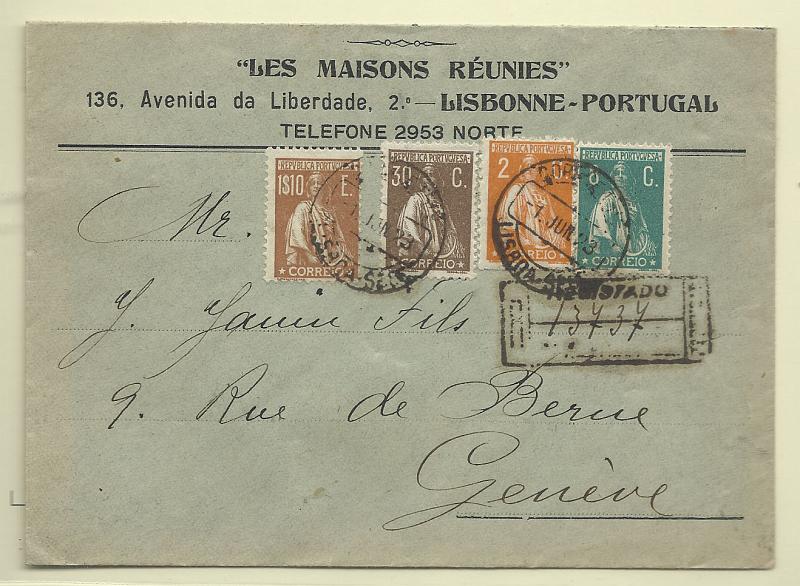 "LES MAISONS RÉUNIES"
136, Avenida da Liberdade, 2.º — LISBONNE-PORTUGAL
TELEFONE 2953 NORTE
REPVBLICA PORTVGVESA
1$10 E.
CORREIO
REPVBLICA PORTVGVESA
30 C.
CORREIO
REPVBLICA PORTVGVESA
2 C.
CORREIO
REPVBLICA PORTVGVESA
8 C.
CORREIO
1. JUN. 23
LISBOA
CORREIO
1. JUN. 23
LISBOA
REGISTADO
13737
Mr.
J. Fils
9. Rue de Berne
Genève